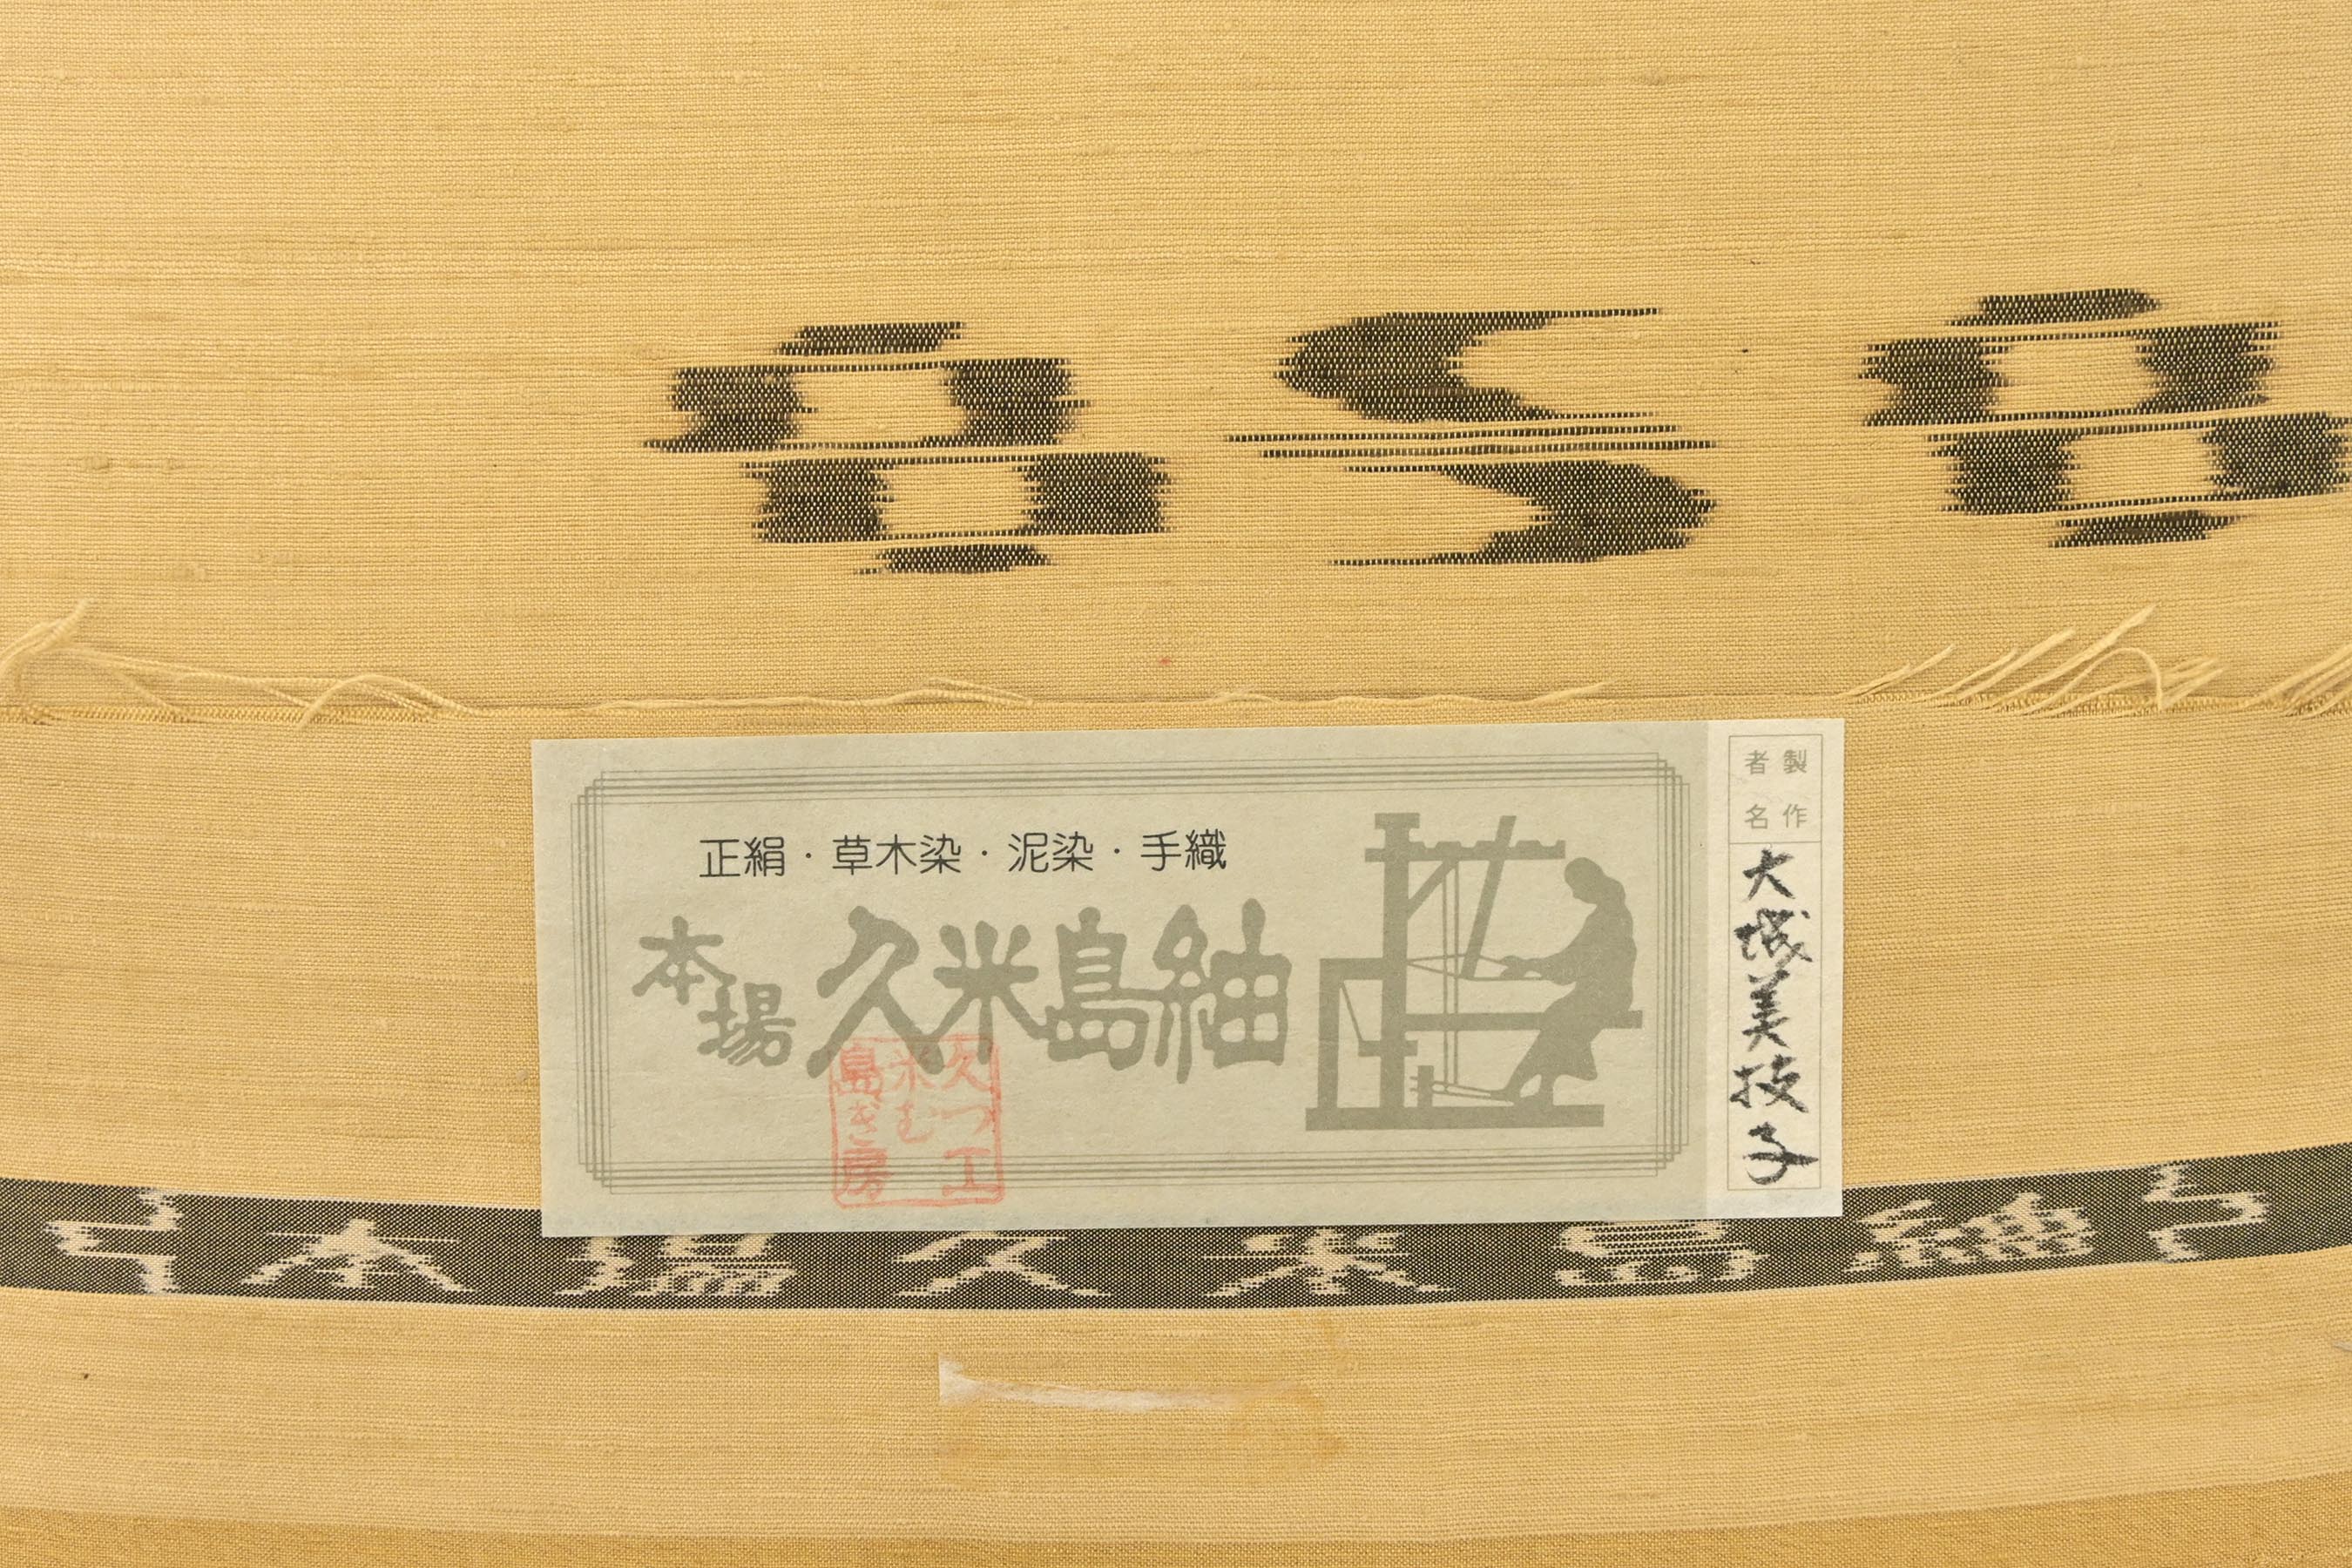 正絹・草木染・泥染・手織
本場久米島紬
久米島
つむぎ
工房
製作者名
大城美技子
本場久米島紬